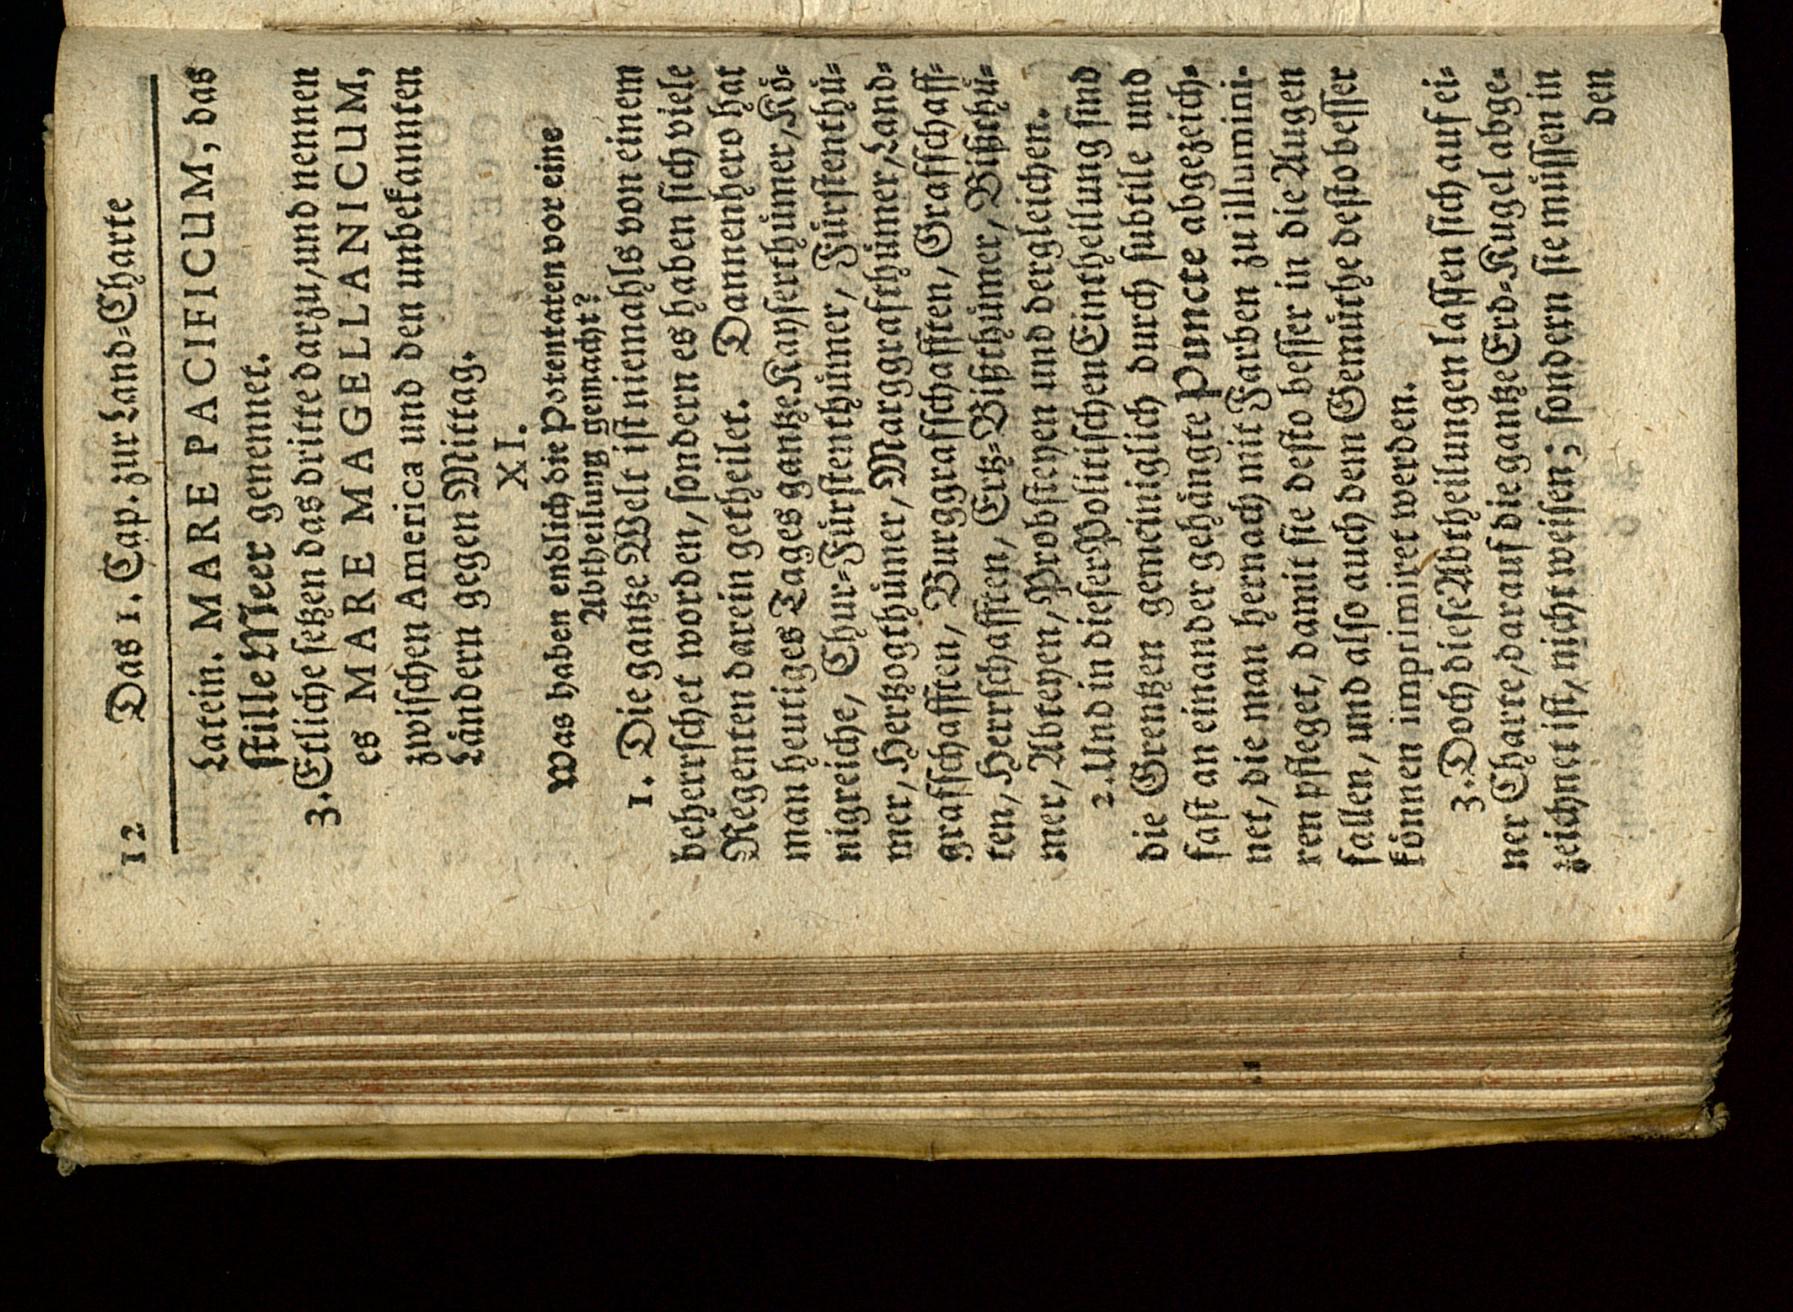 12 Das 1. Cap. zur Land-Charte
Latein. MARE PACIFICUM, das
stille Meer genennet.
3. Etliche setzen das dritte darzu, und nennen
es MARE MAGELLANICUM,
zwischen America und den unbekannten
Ländern gegen Mittag.
XI.
Was haben endlich die Potentaten vor eine
Abtheilung gemacht?
1. Die gantze Welt ist niemahls von einem
beherrschet worden, sondern es haben sich viele
Regenten darein getheilet. Dannenhero hat
man heutiges Tages gantze Kayserthümer, Kö-
nigreiche, Chur-Fürstenthümer, Fürstenthü-
mer, Hertzogthümer, Marggrafthümer, Land-
grafschafften, Burggrafschafften, Grafschaff-
ten, Herrschafften, Ertz-Bißthümer, Bißthü-
mer, Abteyen, Probsteyen und dergleichen.
2. Und in dieser Politischen Eintheilung sind
die Grentzen gemeiniglich durch subtile und
fast an einander gehängte Puncte abgezeich-
net, die man hernach mit Farben zu illumini-
ren pfleget, damit sie desto besser in die Augen
fallen, und also auch dem Gemüthe desto besser
können imprimiret werden.
3. Doch diese Abtheilungen lassen sich auf ei-
ner Charte, darauf die gantze Erd-Kugel abge-
zeichnet ist, nicht weisen; sondern sie müssen in
den